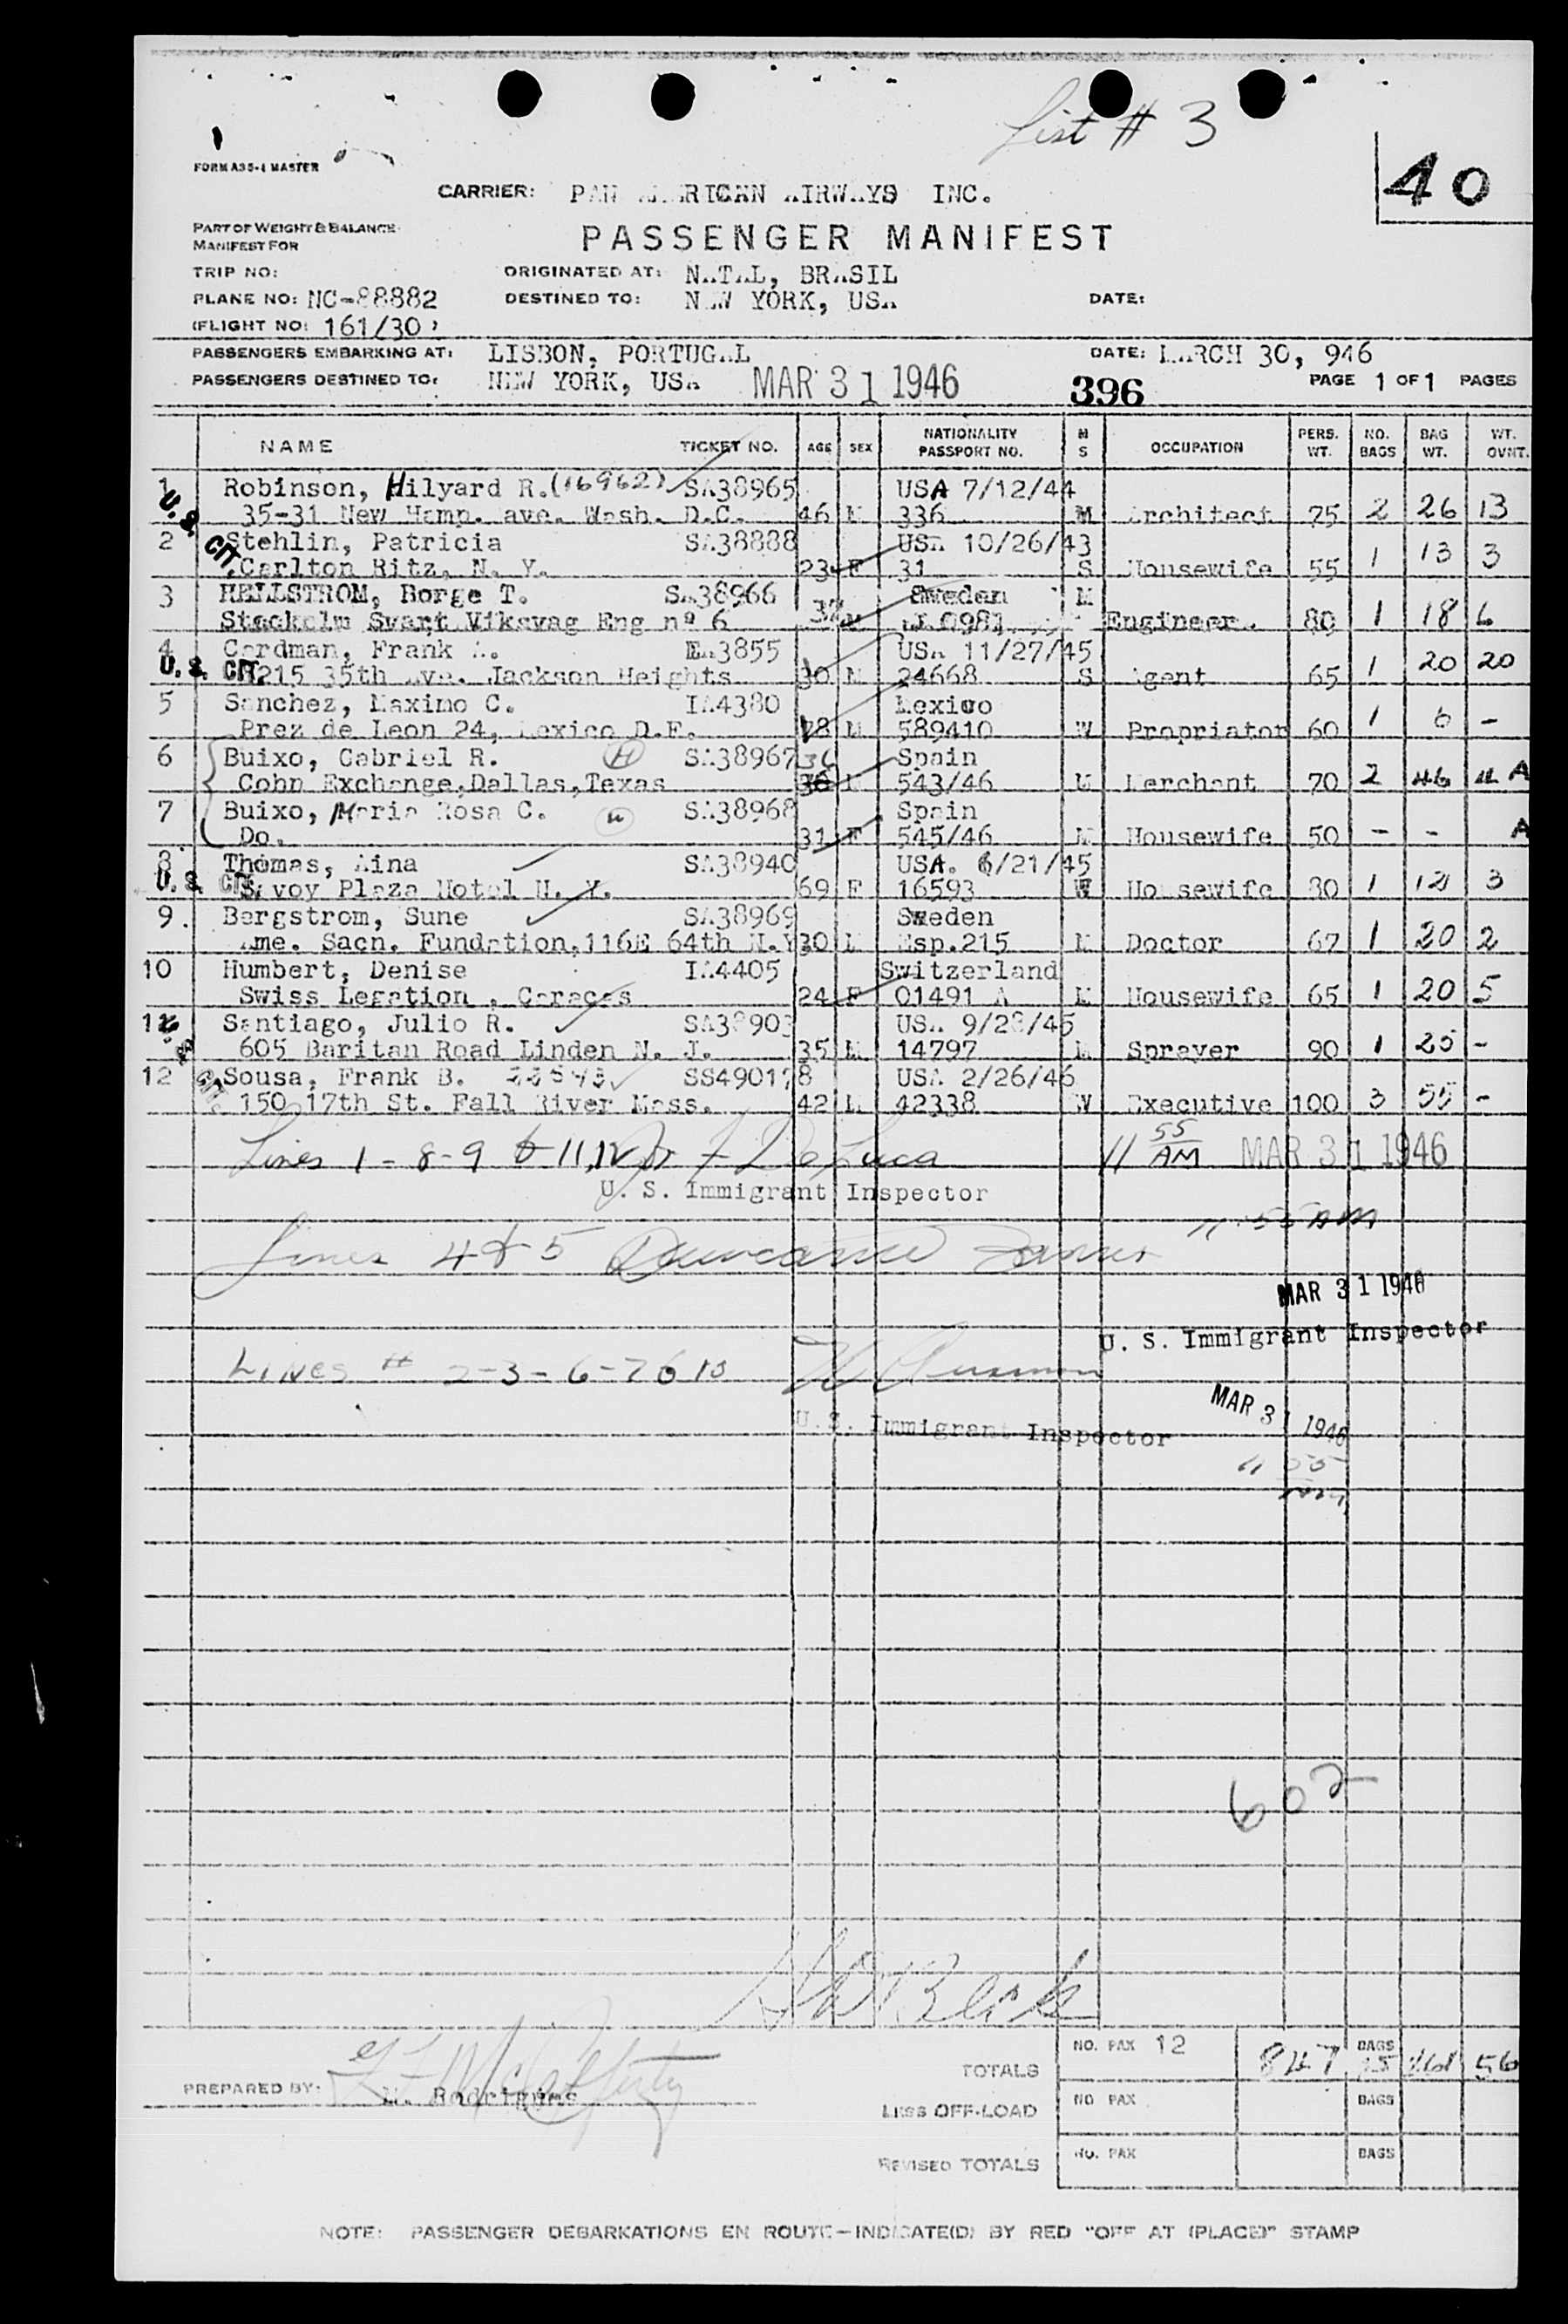 List # 3
FORM A35-4 MASTER
40
CARRIER: PAN AMERICAN AIRWAYS INC.
PART OF WEIGHT & BALANCE
MANIFEST FOR
PASSENGER MANIFEST
TRIP NO: ORIGINATED AT: NATAL, BRASIL
PLANE NO: NC-88882 DESTINED TO: NEW YORK, USA DATE:
(FLIGHT NO: 161/30)
PASSENGERS EMBARKING AT: LISBON, PORTUGAL DATE: MARCH 30, 946
PASSENGERS DESTINED TO: NEW YORK, USA MAR 31 1946 396 PAGE 1 OF 1 PAGES
NAME TICKET NO. AGE SEX NATIONALITY PASSPORT NO. M S OCCUPATION PERS. WT. NO. BAGS BAG WT. WT. OVNT.
1 Robinson, Hilyard R. (16962) SA38965 USA 7/12/44
U.S. CIT. 35-31 New Hamp. ave. Wash. D.C. 46 M 336 M Architect 75 2 26 13
2 Stehlin, Patricia SA38888 USA 10/26/43
Carlton Ritz, N. Y. 23 F 31 S Housewife 55 1 13 3
3 HELLSTROM, Borge T. SA38966 Sweden M
Svart Viksvag Eng nº 6 37 M Engineer. 80 1 18 6
4 Cardman, Frank A. EA3855 USA 11/27/45
U.S. CIT. 215 35th Ave. Jackson Heights 30 M 24668 S Agent 65 1 20 20
5 Sanchez, Maximo C. IA4380 Mexico
Prez de Leon 24, Mexico D.F. 28 M 589410 W Propriator 60 1 6 -
6 Buixo, Gabriel R. H SA38967 36 Spain
Cohn Exchange, Dallas, Texas 36 M 543/46 M Merchant 70 2 46 A
7 Buixo, Maria Rosa C. SA38968 Spain
Do. 31 F 545/46 M Housewife 50 - - A
8 Thomas, Aina SA38940 USA. 6/21/45
U.S. CIT. Savoy Plaza Hotel N. Y. 69 F 16593 W Housewife 80 1 12 3
9. Bergstrom, Sune SA38969 Sweden
Ame. Sacn. Fundation, 116E 64th N.Y 30 M Esp.215 M Doctor 67 1 20 2
10 Humbert, Denise IA4405 Switzerland
Swiss Legation, Caracas 24 F 01491 A M Housewife 65 1 20 5
11 Santiago, Julio R. SA38903 USA 9/28/45
U.S. CIT. 605 Baritan Road Linden N. J. 35 M 14797 M Sprayer 90 1 25 -
12 Sousa, Frank B. SS490178 USA 2/26/46
150 17th St. Fall River Mass. 42 M 42338 W Executive 100 3 55 -
Lines 1-8-9 & 11, 12 De Luca 11 55 AM MAR 31 1946
U. S. Immigrant Inspector
11 55 AM
Lines 4 & 5
MAR 31 1946
U. S. Immigrant Inspector
LINES # 2-3-6-7 & 10
MAR 31 1946
U. S. Immigrant Inspector
11 55
602
TOTALS NO. PAX 12 847 BAGS 15 56
PREPARED BY: Rodrigues
LESS OFF-LOAD NO PAX BAGS
REVISED TOTALS NO. PAX BAGS
NOTE: PASSENGER DEBARKATIONS EN ROUTE—INDICATE(D) BY RED "OFF AT (PLACE)" STAMP